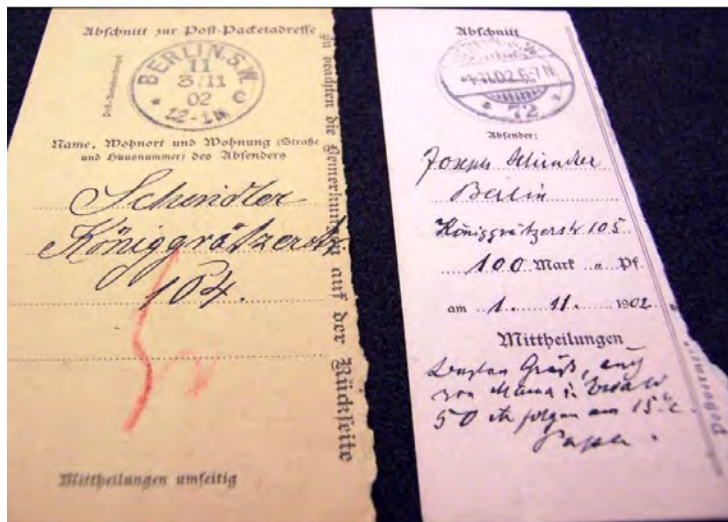 Abschnitt zur Post-Packetadresse
BERLIN.S.W.
11
3/11
02
12-1N
* c
Name, Wohnort und Wohnung (Straße
und Hausnummer) des Absenders
Schindler
Königgrätzerstr.
104.
Mittheilungen umseitig
zu beachten die Bemerkungen auf der Rückseite
Abschnitt
BERLIN S.W.
1.11.02.6-7N
* 72
Absender:
Joseph
Berlin
Königgrätzerstr 105
100 Mark " Pf.
am 1. 11. 1902
Mittheilungen
Besten Gruß,
von Mama
50 folgen am 15.
Papa.